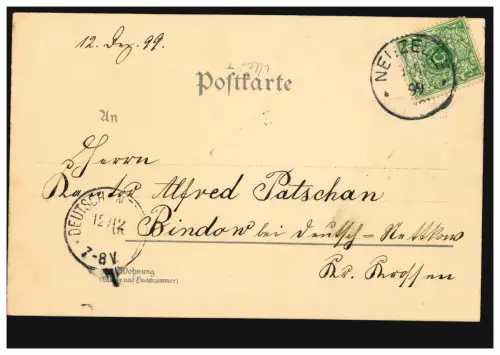 12. Dez. 99.
Postkarte
NEUZELLE
99
An
Herrn
Kantor Alfred Patschan
DEUTSCH-N
12/12
7-8V.
Bindow bei Deutsch-Nettkow
Wohnung
(Straße und Hausnummer)
Kr. Krossen